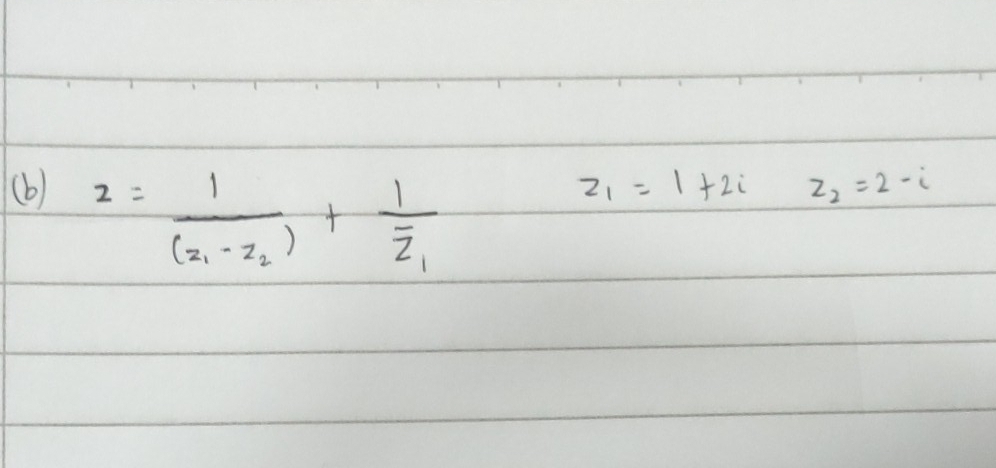 (b) z = 1/(z₁ - z₂) + 1/z̄₁ z₁ = 1+2i z₂ = 2-i